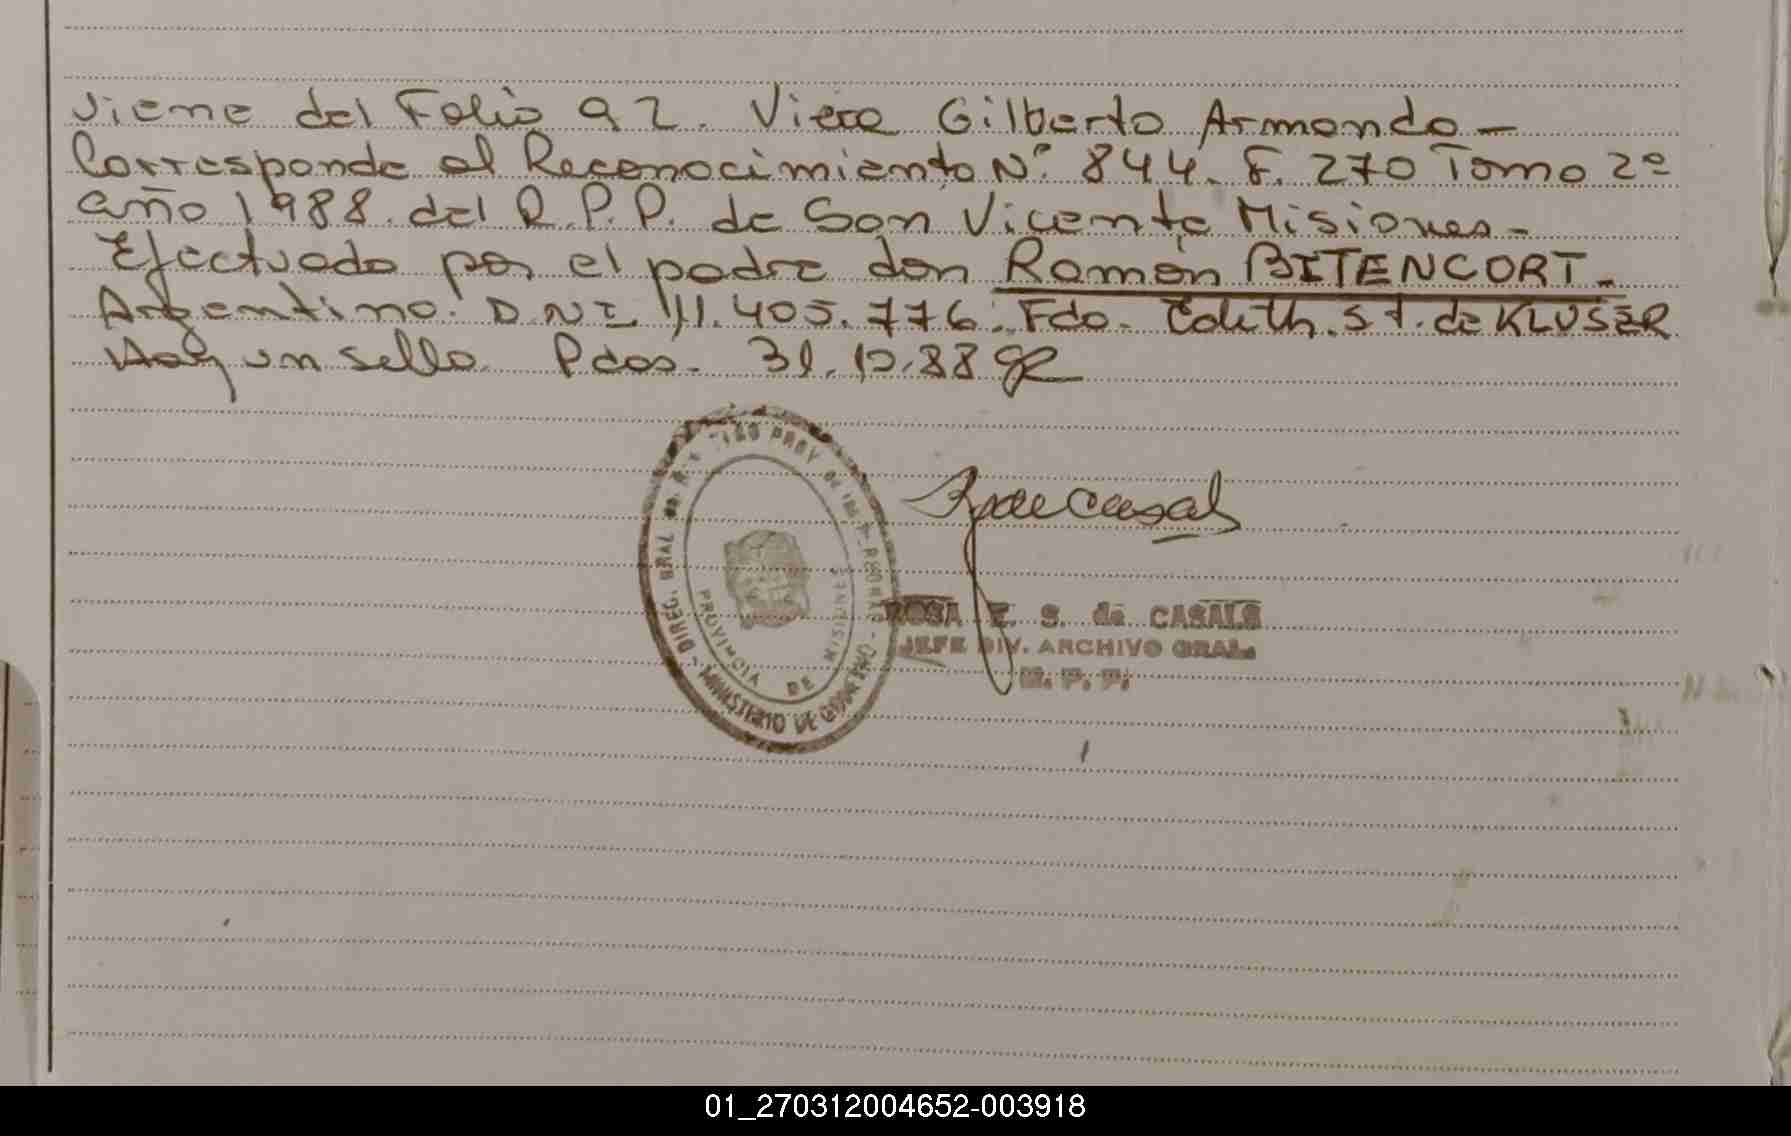 Viene del Folio 92. Viera Gilberto Armando -
Corresponde al Reconocimiento N° 844. F. 270 Tomo 2º
año 1988. del R.P.P. de San Vicente Misiones -
Efectuado por el padre don Ramón BITENCORT.
Argentino. D.N.I. 11.405.776. Fdo. Edith. St. de KLUSER
Hay un sello. Pdas. 31.10.88
DIREC. GRAL
PROV
MINISTERIO DE GOBIERNO
PROVINCIA DE MISIONES
ROSA E. S. de CASALS
JEFE DIV. ARCHIVO GRAL.
R. P. P.
01_270312004652-003918